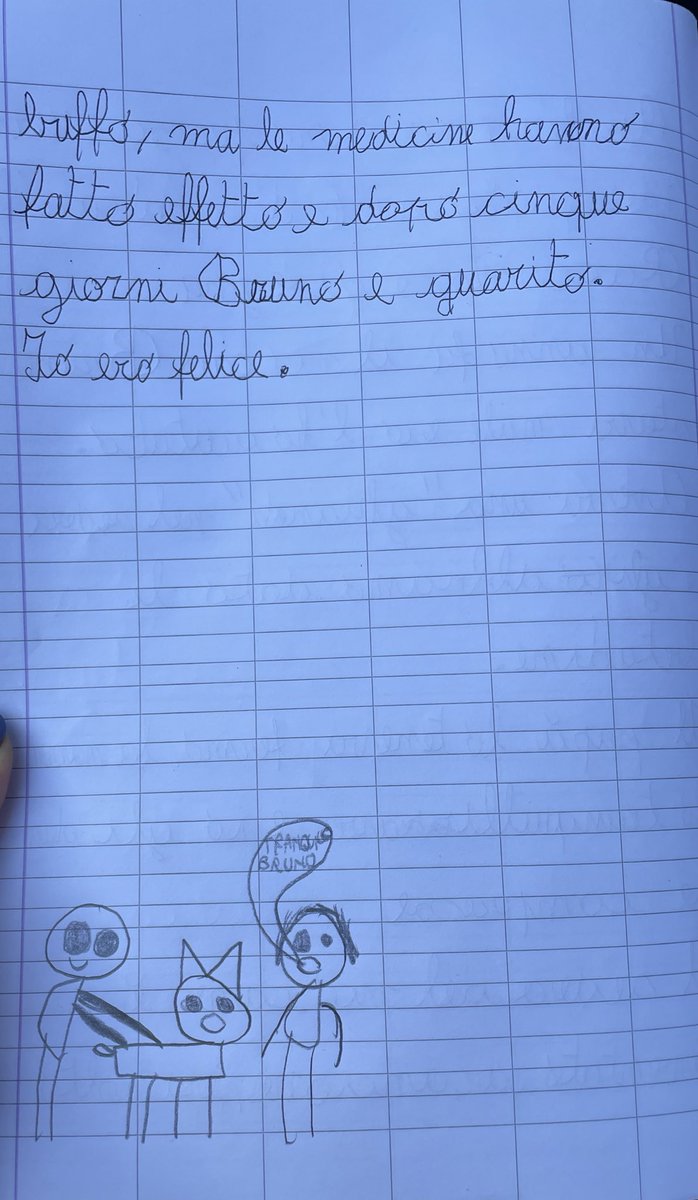 buffo, ma le medicine hanno
fatto effetto e dopo cinque
giorni Bruno e guarito.
Io ero felice.
BRUNO